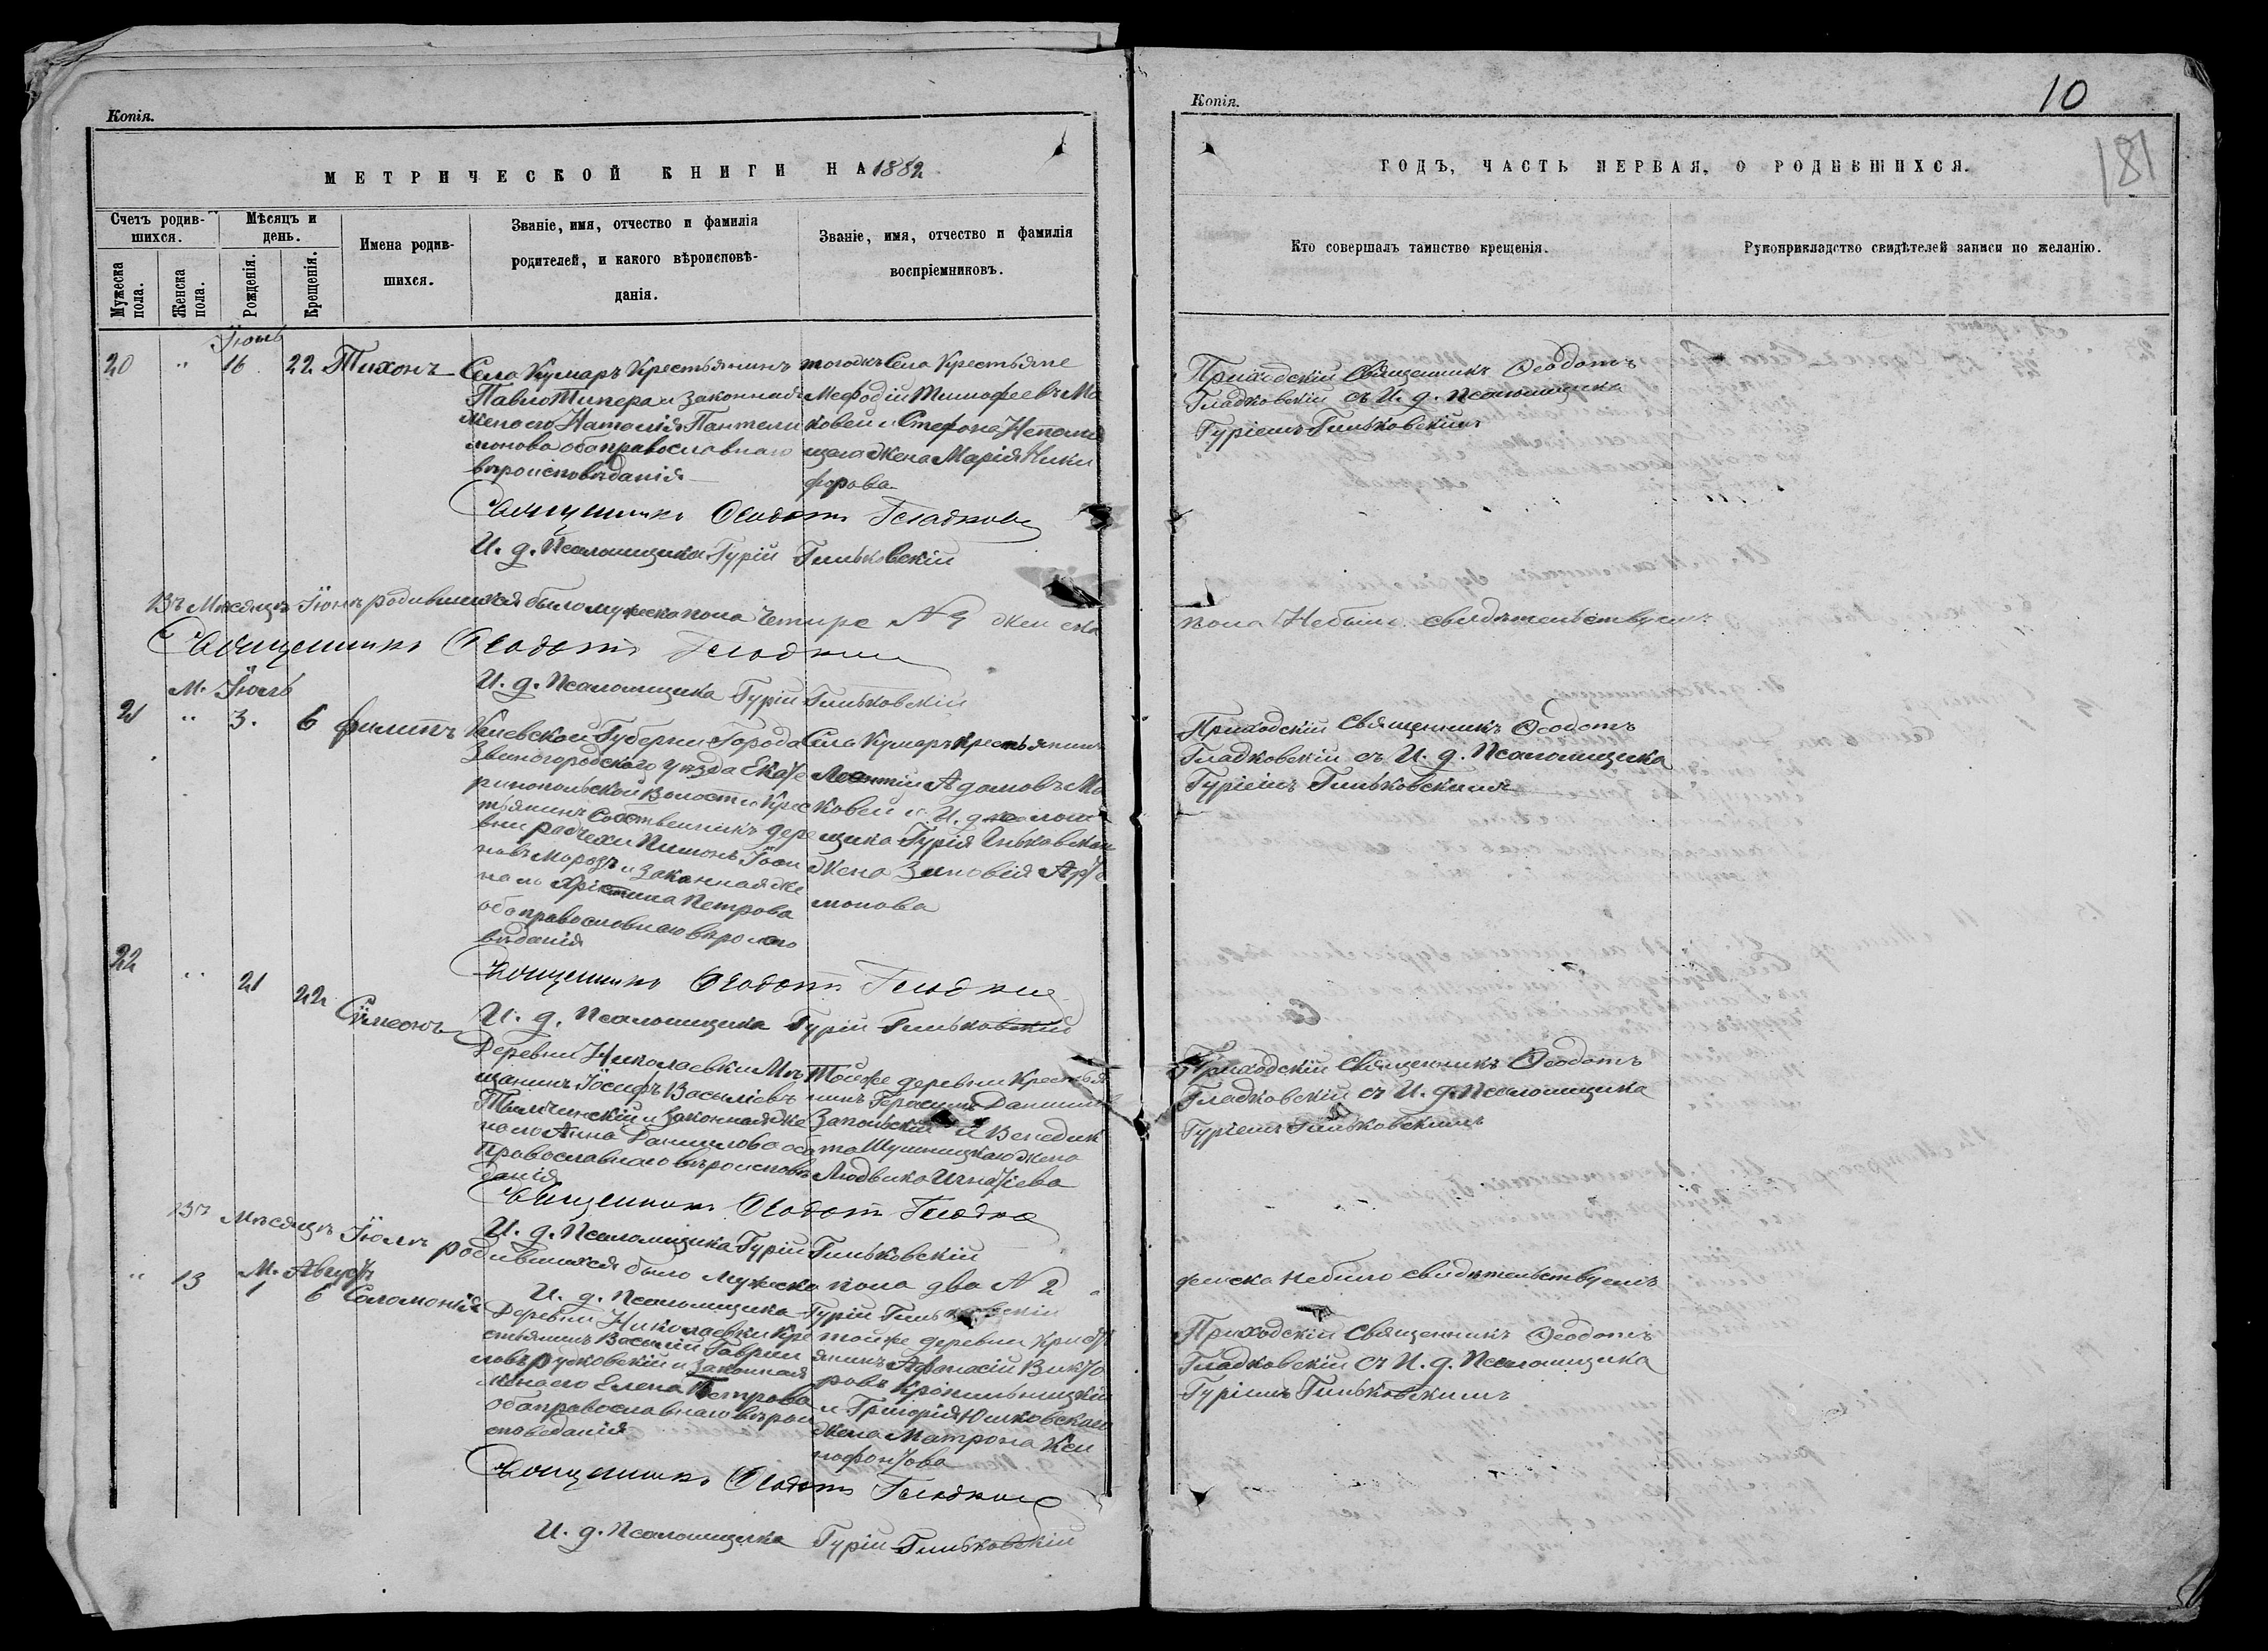 Копія.
МЕТРИЧЕСКОЙ КНИГИ НА 1882
Счетъ родившихся.
Мѣсяцъ и день.
Имена родившихся.
Званіе, имя, отчество и фамилія родителей, и какого вѣроисповѣданія.
Званіе, имя, отчество и фамилія воспріемниковъ.
Мужеска пола.
Женска пола.
Рожденія.
Крещенія.
20 " 16 22 Тихонъ
Села Кумаръ Крестьянинъ
Павло Типера и законная
жена его Наталія Пантели
монова оба православнаго
вѣроисповѣданія
тогожъ Села Крестьяне
Мефодій Тимофеевъ Ма
ковей и Стефана
щаго жена Марія Ники
форова
Священникъ Ѳеодотъ
И. д. Псаломщика Гурій Гиньковскій
Въ Мѣсяцѣ Іюнѣ родившихся было мужеска пола четыре N 4 женска
Священникъ Ѳеодотъ
И. д. Псаломщика Гурій Гиньковскій
М. Іюль
21 " 3. 6 Филипъ
Кіевской Губерніи Города
Звенигородскаго уѣзда Екате
ринопольской Волости Крес
тьянинъ Собственникъ дере
вни Пимонъ Іоан
новъ Морозъ и законная же
на его Христина Петрова
оба православнаго вѣроиспо
вѣданія
Села Кумаръ Крестьянинъ
Леонтій Адамовъ Ма
ковей и И. д. псалом
щика Гурія Гиньковскаго
жена Зиновія Арте
монова
Священникъ Ѳеодотъ
И. д. Псаломщика Гурій Гиньковскій
22 " 21 22 Сімеонъ
Деревни Николаевки Мѣ
щанинъ Іосифъ Васильевъ
и законная же
на его Анна Данилова оба
Православнаго вѣроисповѣ
данія
Тойже деревни Крестья
нинъ Герасимъ Данилов
и Венедик
та жена
Людвика Игнатіева
Священникъ Ѳеодотъ
И. д. Псаломщика Гурій Гиньковскій
Въ Мѣсяцѣ Іюлѣ родившихся было мужеска пола два N 2
И. д. Псаломщика Гурій Гиньковскій
М. Августъ
" 13 1 6 Соломонія
Деревни Николаевки Кре
стьянинъ Василій Гаврии
ловъ Рудковскій и законная
жена его Елена Петрова
оба православнаго вѣрои
споведанія
тойже деревни Кристь
янинъ Афанасій Викто
ровъ Кропильницкій
и Григорія Юшковскаго
жена Матрона Ксе
нофонтова
Священникъ Ѳеодотъ
И. д. Псаломщика Гурій Гиньковскій
Копія.
10
181
ГОДЪ, ЧАСТЬ ПЕРВАЯ, О РОДИВШИХСЯ.
Кто совершалъ таинство крещенія.
Рукоприкладство свидѣтелей записи по желанію.
Приходскій Священникъ Ѳеодотъ
Гладковскій съ И. д. Псаломщика
Гуріемъ Гиньковскимъ
пола Небыло свидѣтельствуемъ
Приходскій Священникъ Ѳеодотъ
Гладковскій съ И. д. Псаломщика
Гуріемъ Гиньковскимъ
Приходскій Священникъ Ѳеодотъ
Гладковскій съ И. д. Псаломщика
Гуріемъ Гиньковскимъ
женска небыло свидѣтельствуемъ
Приходскій Священникъ Ѳеодотъ
Гладковскій съ И. д. Псаломщика
Гуріемъ Гиньковскимъ